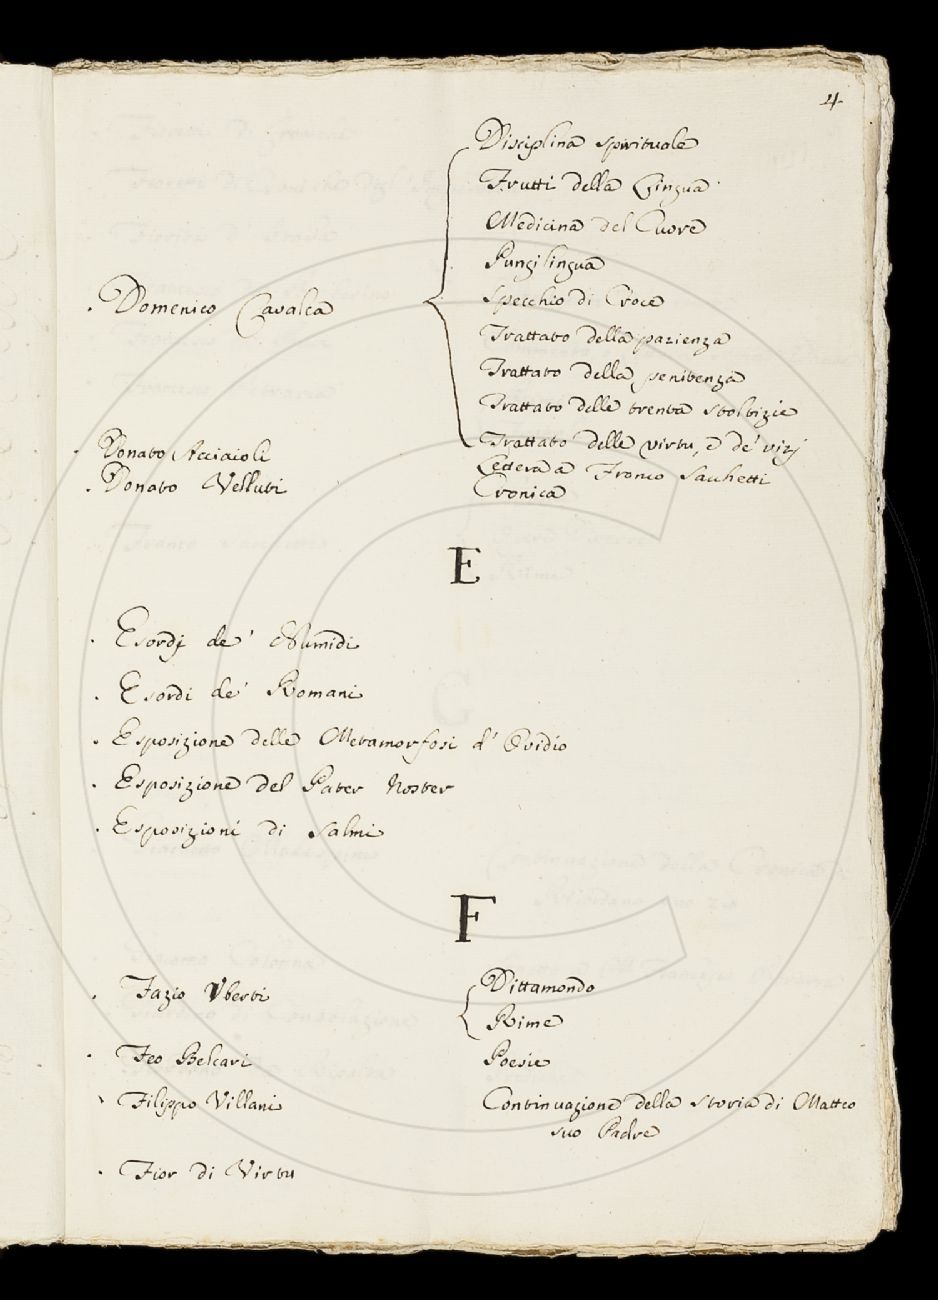 4
Disciplina spirituale
Frutti della Lingua
Medicina del Cuore
Pungilingua
Specchio di Croce
. Domenico Cavalca
Trattato della pazienza
Trattato della penitenza
Trattato delle trenta stoltizie
Trattato delle virtu, e de' vizj
. Donato Acciaioli Lettera a Franco Sacchetti
. Donato Velluti Cronica
E
. Esordj de' Numidi
. Esordi de' Romani
. Esposizione delle Metamorfosi d' Ovidio
. Esposizione del Pater Noster
. Esposizioni di Salmi
F
. Fazio Vberti Dittamondo
Rime
. Feo Belcari Poesie
. Filippo Villani Continuazione della Storia di Matteo
suo Padre
. Fior di Virtu